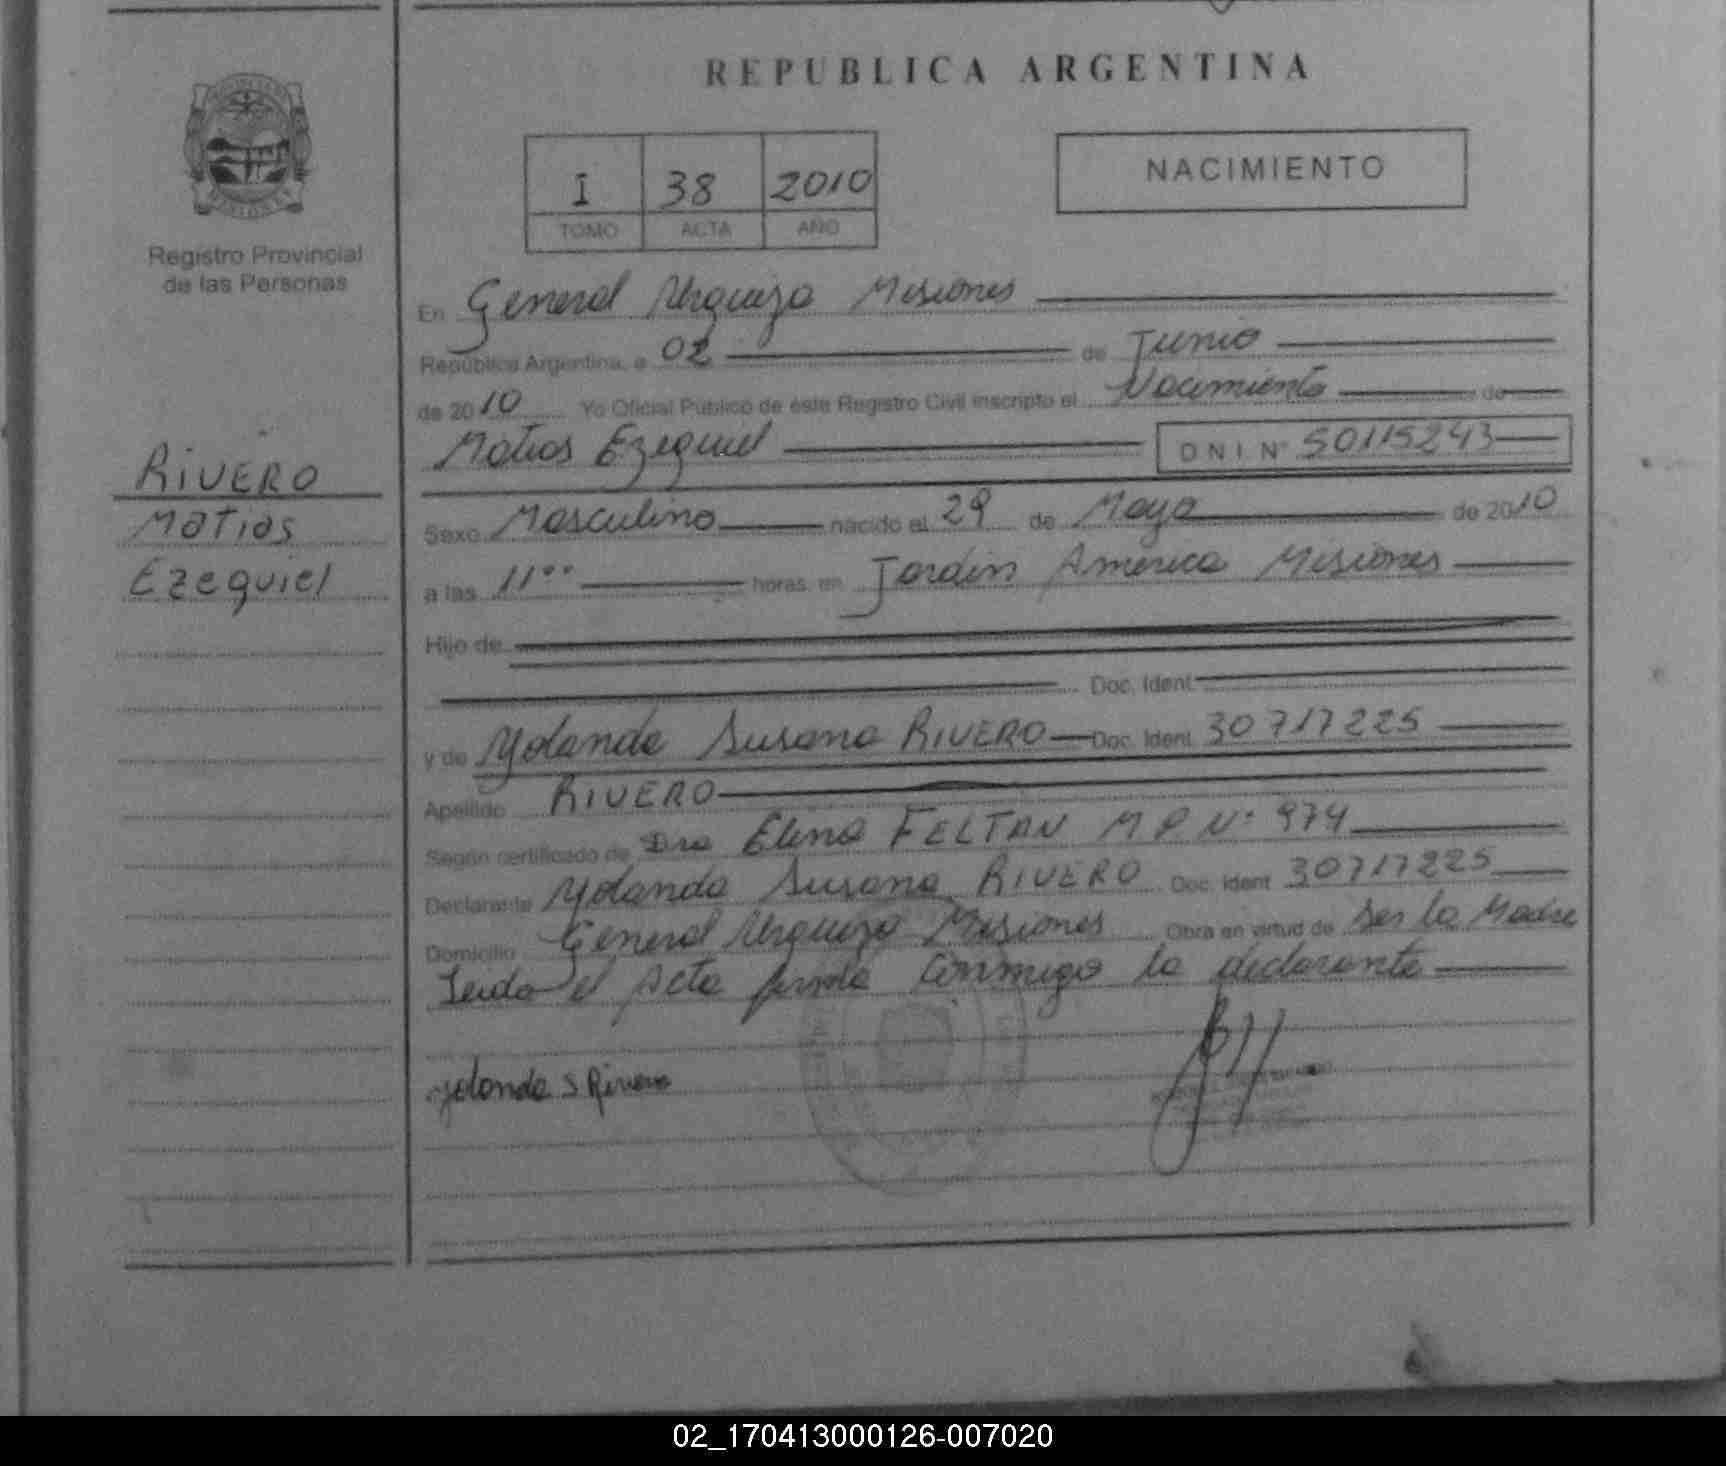 REPUBLICA ARGENTINA
I 38 2010
TOMO ACTA AÑO
NACIMIENTO
Registro Provincial
de las Personas
En General Urquiza Misiones
República Argentina, a 02 de Junio
de 2010 Yo Oficial Público de este Registro Civil inscripto el Nacimiento de
Matias Ezequiel DNI Nº 50115243
RIVERO
Matias
Ezequiel
Sexo Masculino nacido el 29 de Mayo de 2010
a las 11°° horas, en Jardin America Misiones
Hijo de
Doc. Ident.
y de Yolanda Susana RIVERO Doc. Ident. 30717225
Apellido RIVERO
Según certificado de Dra Elena FELTAN M P Nº 974
Declarante Yolanda Susana RIVERO Doc. Ident 30717225
Domicilio General Urquiza Misiones Obra en virtud de Ser la Madre
Leida el Acta firma conmigo la declarante
Yolanda S Rivero
02_170413000126-007020